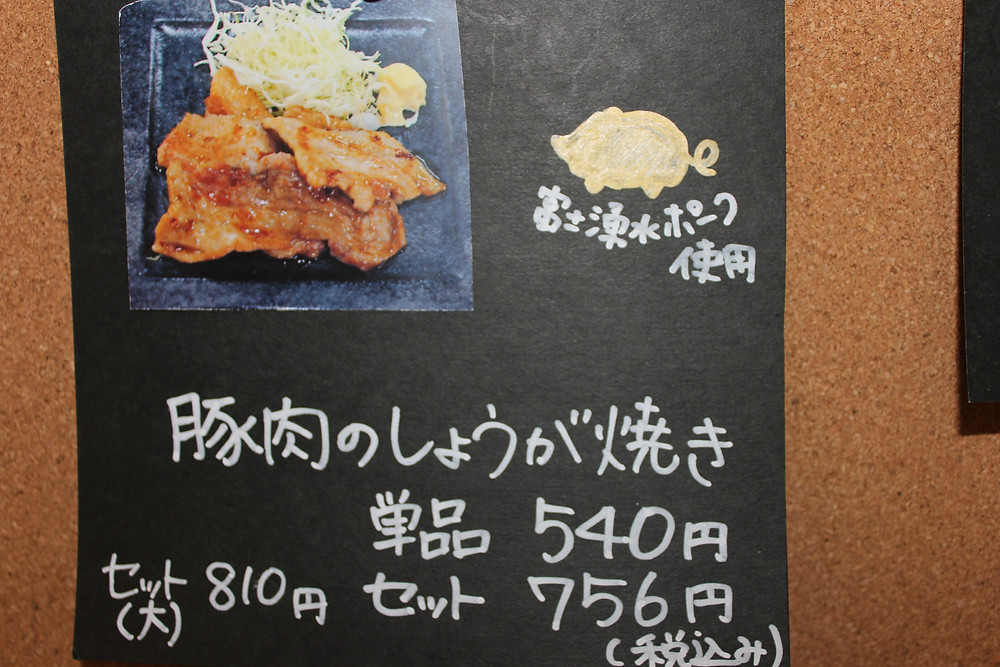 富士湧水ポーク
使用
豚肉のしょうが焼き
単品 540円
セット 756円
(税込み)
セット 810円
(大)